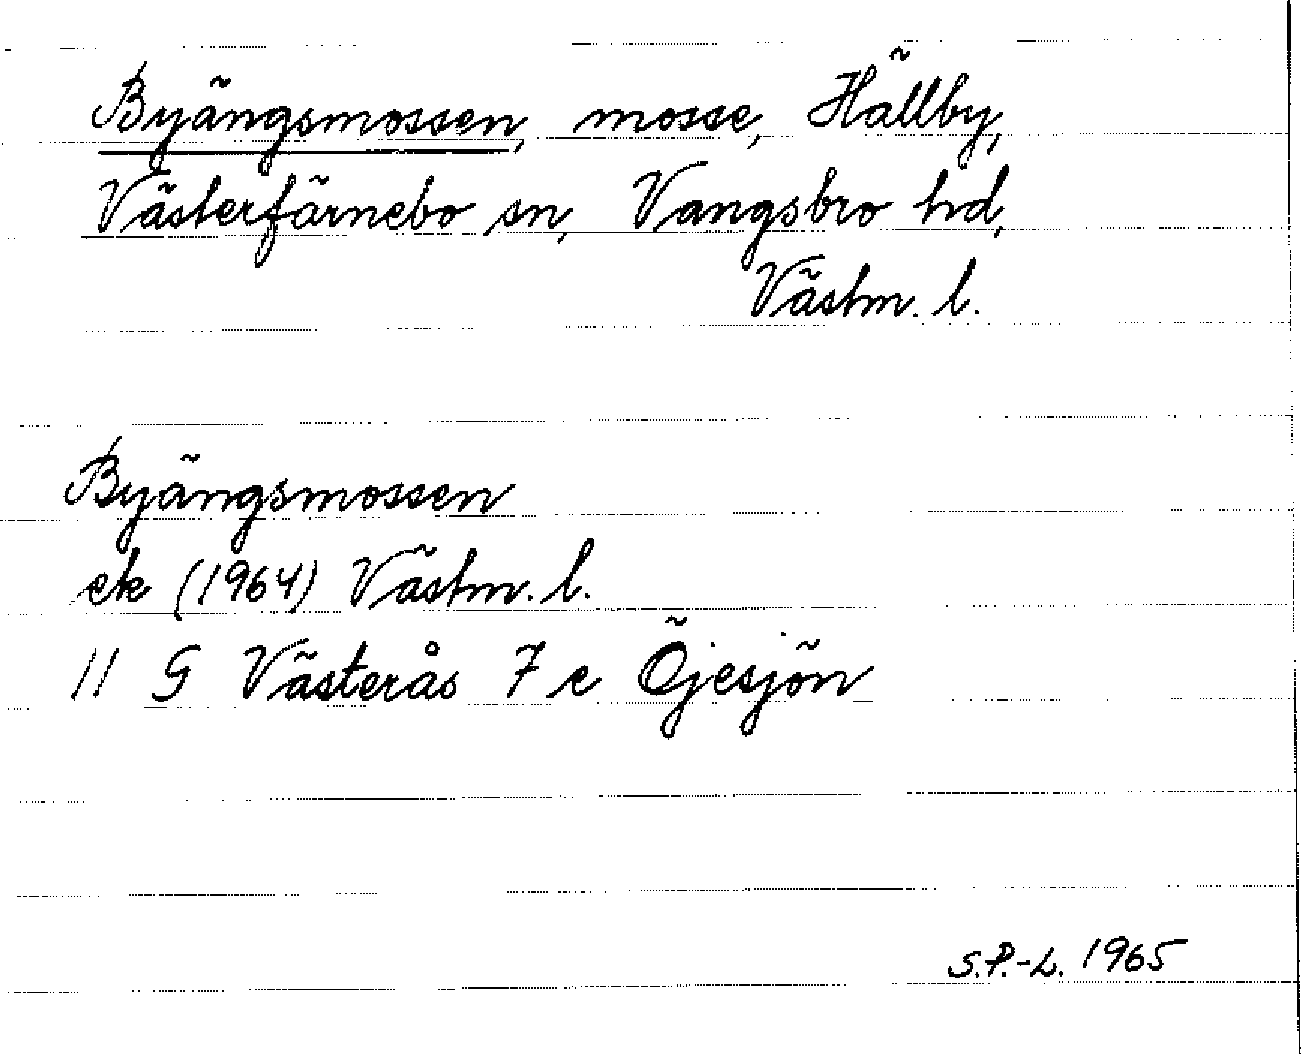 Byängsmossen, mosse, Hällby,
Västerfärnebo sn, Vangsbro hd,
Västm. l.
Byängsmossen
ek (1964) Västm. l.
11 G Västerås 7 e Öjesjön
S.P.-L. 1965